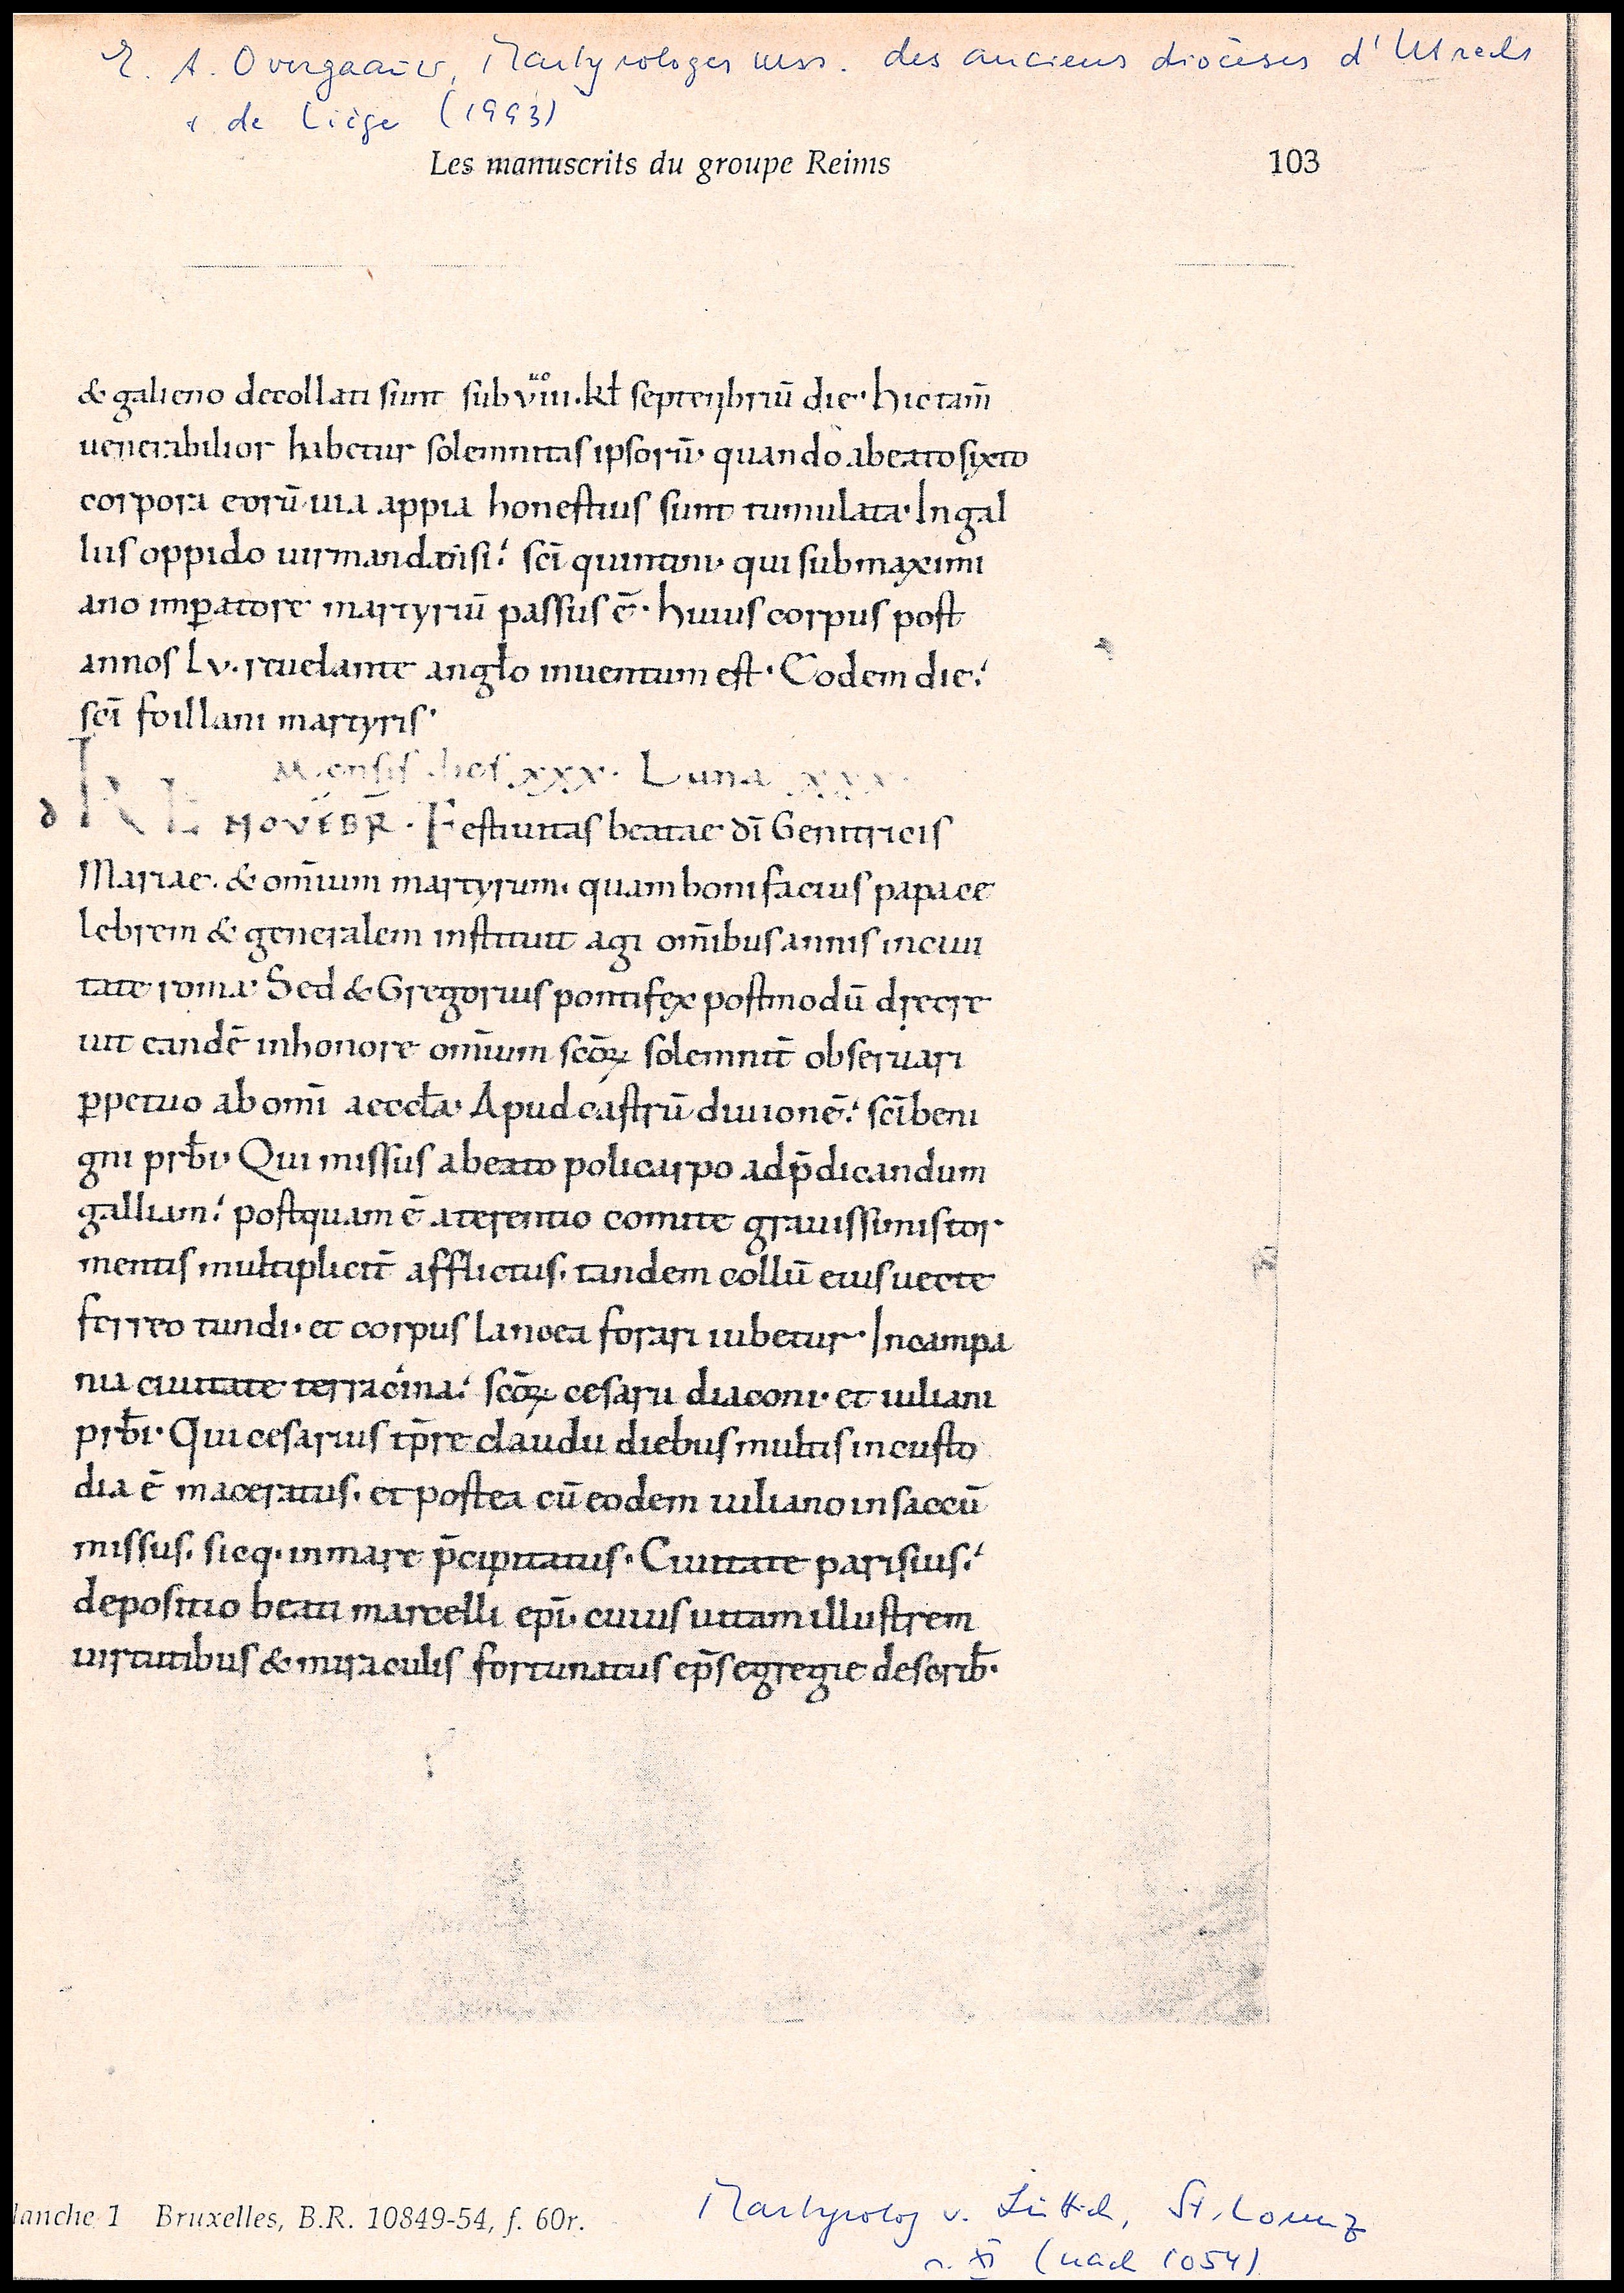 E. A. Overgaauw, Martyrologes mss. des anciens diocèses d'Utrecht
& de Liège (1993)
Les manuscrits du groupe Reims 103
& galieno decollati sunt sub viii. kł septembriū die· hic tam̄
uenerabilior habetur solemnitas ipsorū· quando abeato sixto
corpora eorū uia appia honestius sunt tumulata· In gal
liis oppido uirmandensi: sc̄i quintini· qui sub maximi
ano imꝑatore martyriū passus ē· huius corpus post
annos lv. reuelante angło inuentum est· Eodem die:
sc̄i foillani martyris·
Mensis hēt xxx. Luna xxx.
d KL NOVĒBR̄. Festiuitas beatae dī Genitricis
Mariae. & om̄ium martyrum· quam bonifacius papa ce
lebrem & generalem instituit agi om̄ibus annis in ciui
tate roma· Sed & Gregorius pontifex postmodū decre
uit eandē in honore om̄ium scōꝝ solemnit̄ obseruari
ꝑpetuo ab omī aeccła· Apud castrū diuionē: sc̄i beni
gni prb̄i· Qui missus abeato policarpo ad p̄dicandum
galliam: postquam ē aterentio comite grauissimis tor
mentis multiplicit̄ afflictus· tandem collū eius uecte
ferreo tundi· et corpus lancea forari iubetur· In campa
nia ciuitate terracina: scōꝝ cesarii diaconi· et iuliani
prb̄i· Qui cesarius tp̄re claudii diebus multis in custo
dia ē maceratus· et postea cū eodem iuliano in saccū
missus· sicq· in mare p̄cipitatus· Ciuitate parisius:
depositio beati marcelli ep̄i· cuius uitam illustrem
uirtutibus & miraculis fortunatus ep̄s egregie describ̄·
lanche 1 Bruxelles, B.R. 10849-54, f. 60r.
Martyrolog v. Lüttich, St. Lorenz
s. XI (nach 1054)